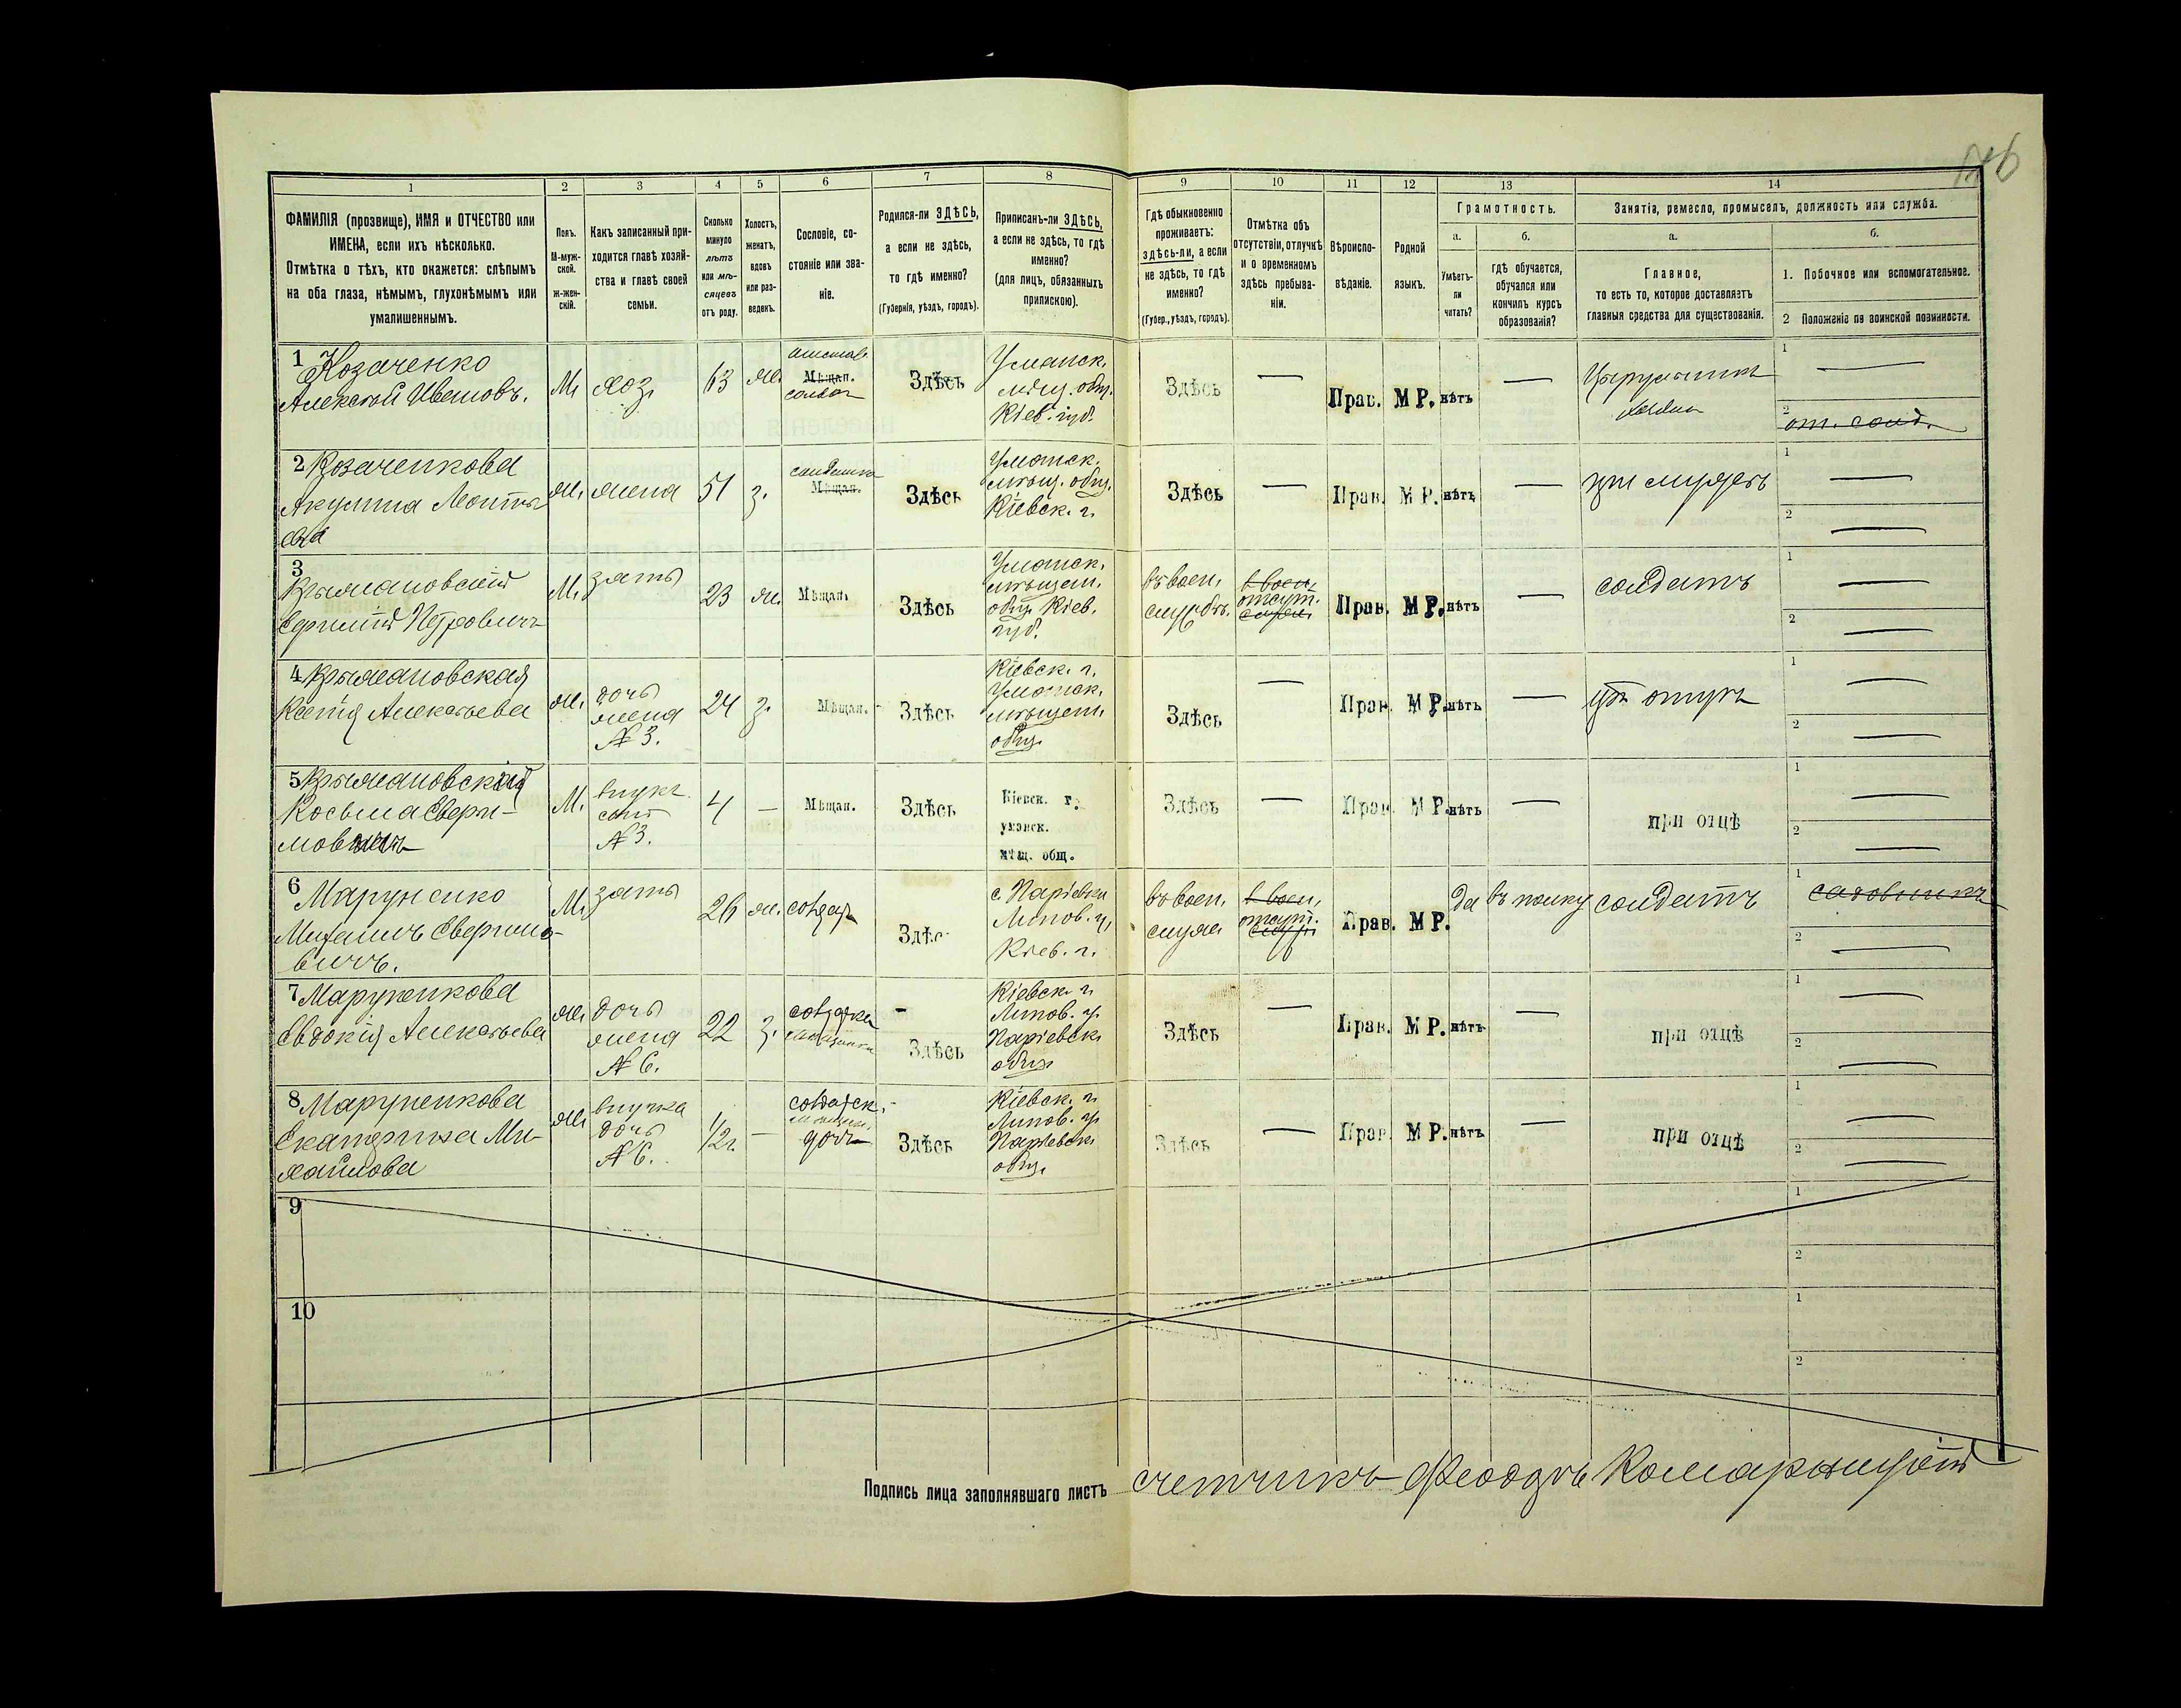 146
1 2 3 4 5 6 7 8 9 10 11 12 13 14
ФАМИЛІЯ (прозвище), ИМЯ и ОТЧЕСТВО или
ИМЕНА, если ихъ нѣсколько.
Отмѣтка о тѣхъ, кто окажется: слѣпымъ
на оба глаза, нѣмымъ, глухонѣмымъ или
умалишеннымъ.
Полъ.
М-муж-
ской.
ж-жен-
скій.
Какъ записанный при-
ходится главѣ хозяй-
ства и главѣ своей
семьи.
Сколько
минуло
лѣтъ
или мѣ-
сяцевъ
отъ роду.
Холостъ,
женатъ,
вдовъ
или раз-
веденъ.
Сословіе, со-
стояніе или зва-
ніе.
Родился-ли ЗДѢСЬ,
а если не здѣсь,
то гдѣ именно?
(Губернія, уѣздъ, городъ).
Приписанъ-ли ЗДѢСЬ,
а если не здѣсь, то гдѣ
именно?
(для лицъ, обязанныхъ
припискою).
Гдѣ обыкновенно
проживаетъ:
здѣсь-ли, а если
не здѣсь, то гдѣ
именно?
(Губер., уѣздъ, городъ).
Отмѣтка объ
отсутствіи, отлучкѣ
и о временномъ
здѣсь пребыва-
ніи.
Вѣроиспо-
вѣданіе.
Родной
языкъ.
Грамотность.
а.
Умѣетъ-
ли
читать?
б.
гдѣ обучается,
обучался или
кончилъ курсъ
образованія?
Занятія, ремесло, промыселъ, должность или служба.
а.
Главное,
то есть то, которое доставляетъ
главныя средства для существованія.
б.
1. Побочное или вспомогательное.
2 Положеніе по воинской повинности.
1 Козаченко
Алексѣй Ивановъ.
М
хоз.
63
же.
отстав.
Мѣщан.
солдат
Здѣсь
Уманск.
мѣщ. общ.
Кіев. губ.
Здѣсь
—
Прав.
М Р.
нѣтъ
—
Цырульникъ
1 —
2 от. солд.
2 Козаченкова
Акулина Леонтье
ва
же.
жена
51
з.
солдатка
Мѣщан.
Здѣсь
Уманск.
мѣщ. общ.
Кіевск. г.
Здѣсь
—
Прав.
М Р.
нѣтъ
—
при мужѣ
1 —
2 —
3
Крыжановскій
Петровичъ
М.
зять
23
же.
Мѣщан.
Здѣсь
Уманск.
мѣщан.
общ. Кіев.
губ.
въ воен.
службѣ.
в воен.
отсут.
служ.
Прав.
М Р.
нѣтъ
—
солдатъ
1 —
2 —
4 Крыжановская
Ксенія Алексѣева
же.
дочь
жена
№ 3.
24
з.
Мѣщан.
Здѣсь
Кіевск. г.
Уманск.
мѣщан.
общ.
Здѣсь
—
Прав.
М Р.
нѣтъ
—
при отцѣ
1 —
2 —
5 Крыжановскій
Косьма
М.
внукъ
сынъ
№ 3.
4
—
Мѣщан.
Здѣсь
Кіевск. г.
уманск.
мѣщ. общ.
Здѣсь
—
Прав.
М Р.
нѣтъ
—
при отцѣ
1 —
2 —
6 Маруненко
Михаилъ
вичъ.
М.
зять
26
же.
солдат
Здѣс
с. Паріевки
Липов. у.
Кіев. г.
въ воен.
служ.
в воен.
отсут.
служ.
Прав.
М Р.
да
въ полку
солдатъ
1 садовникъ
2 —
7 Маруненкова
Евдокія Алексѣева
же.
дочь
жена
№ 6.
22
з.
солдатка
-
Здѣсь
Кіевск. г.
Липов. у.
Паріевск.
общ.
Здѣсь
—
Прав.
М Р.
нѣтъ
—
при отцѣ
1 —
2 —
8 Маруненкова
Екатерина Ми-
хайлова
же.
внучка
дочь
№ 6.
1/2 г.
—
солдатск.
дочь
Здѣсь
Кіевск. г.
Липов. у.
Паріевск.
общ.
Здѣсь
—
Прав.
М Р.
нѣтъ
—
при отцѣ
1 —
2 —
9
1
2
10
1
2
Подпись лица заполнявшаго листъ счетчикъ Феодоръ Комарницкій